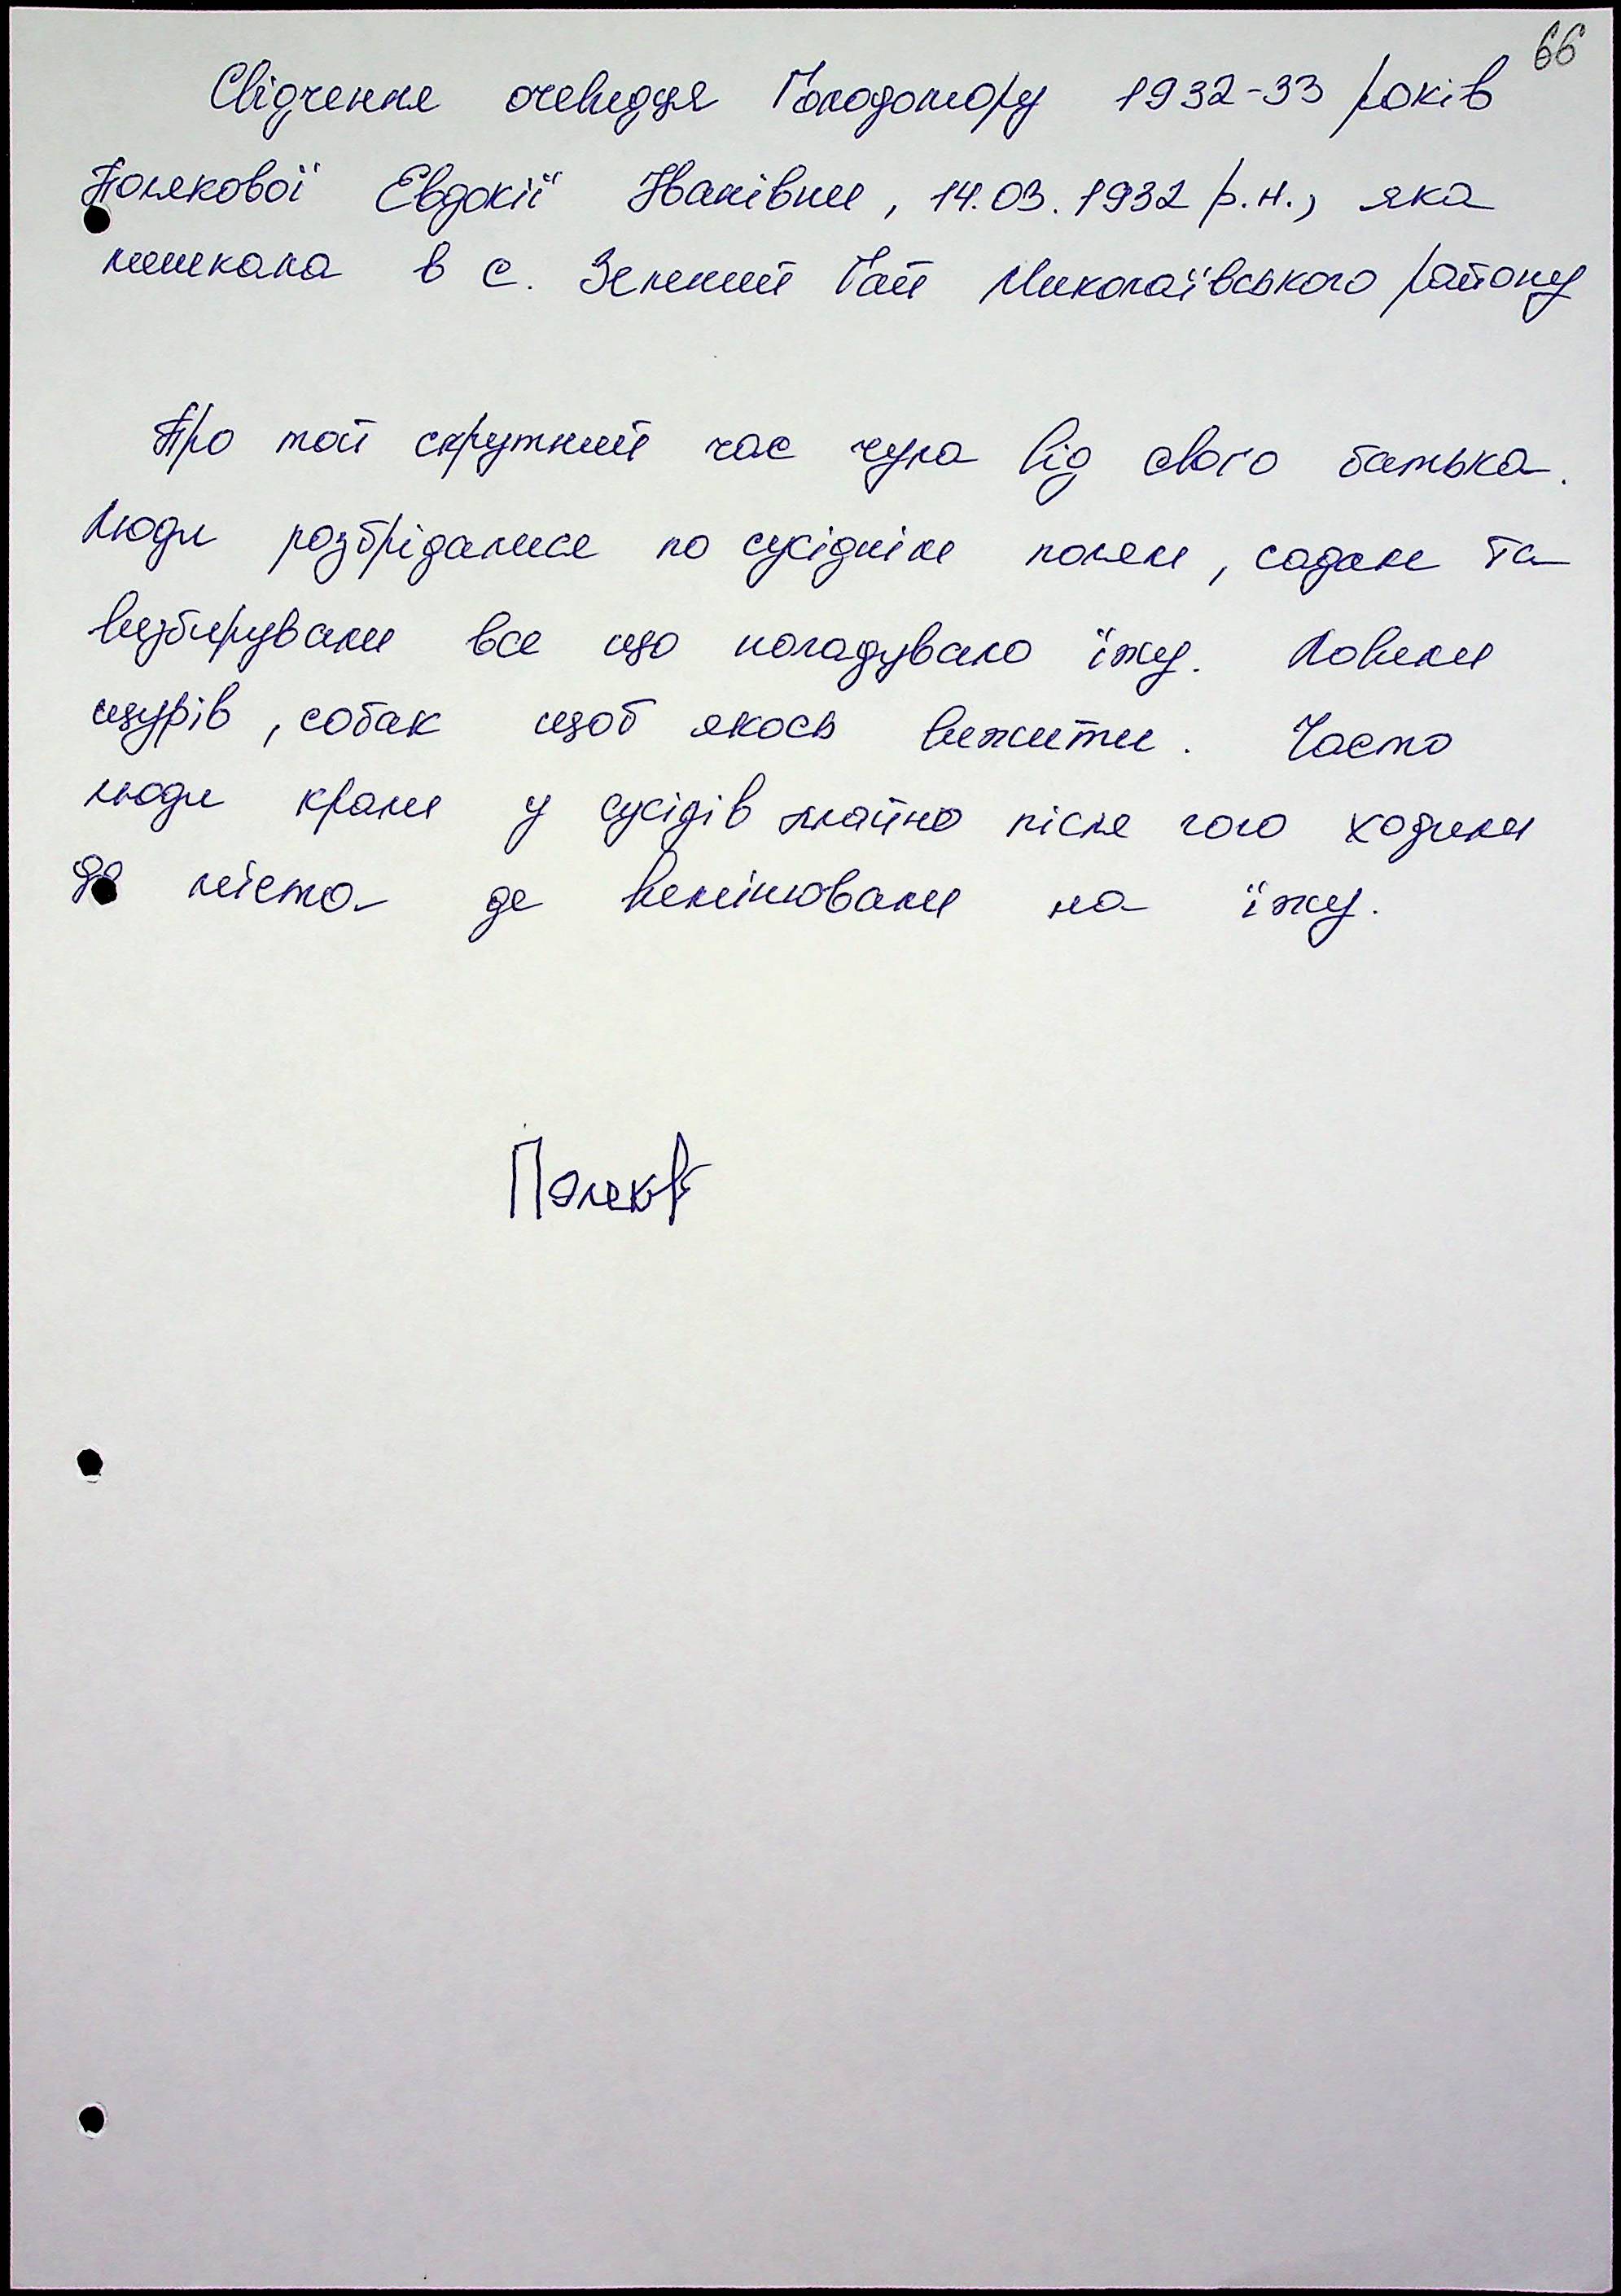 66
Свідчення очевидця Голодомору 1932-33 років
Полякової Евдокії Іванівни, 14.03.1932 р.н., яка
мешкала в с. Зелений Гай Миколаївського району
Про той скрутний час чула від свого батька.
Люди розбрідалися по сусіднім полям, садам та
визбирували все що нагадувало їжу. Ловили
щурів, собак щоб якось вижити. Часто
люди крали у сусідів майно після чого ходили
до міста де вимінювали на їжу.